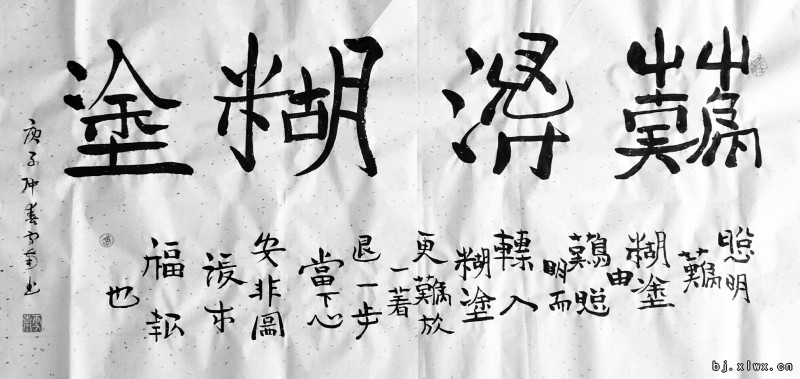 難得糊塗
聰明
難
糊塗
由
難聰
明而
轉入
糊塗
更難放
一著
退一步
當下心
安非圖
後来
福報
也
庚子仲春
bj.xlwx.cn